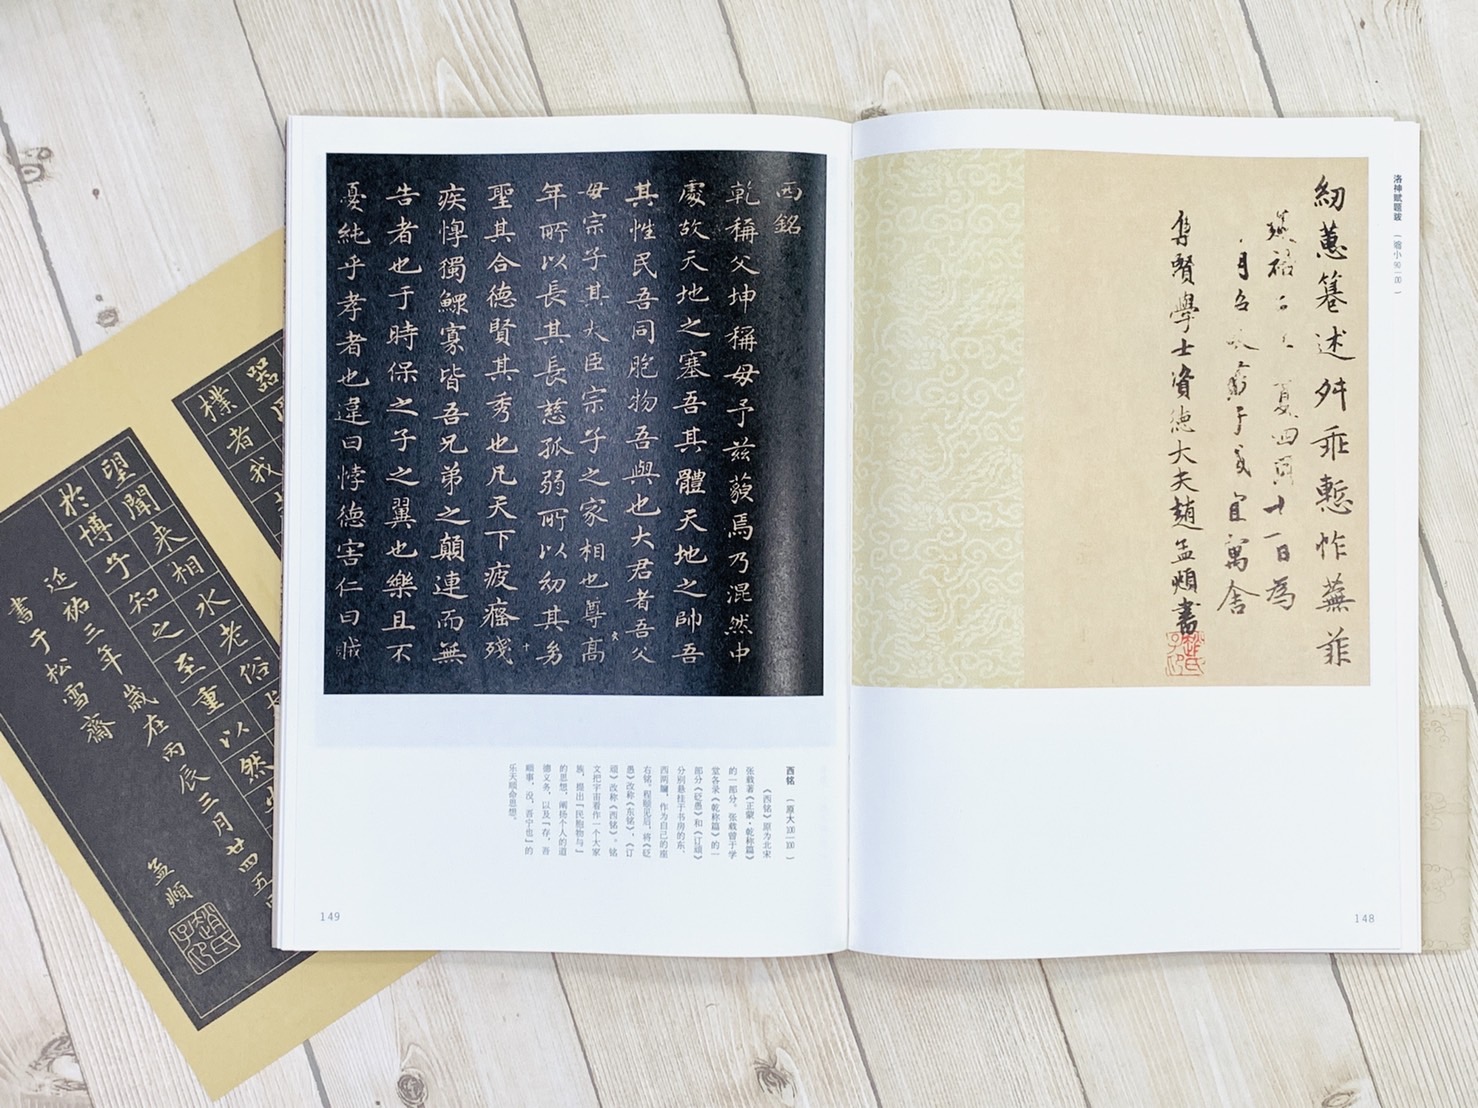 洛神赋题跋
紉蕙篹述舛乖慙怍蕪菲
祐二 夏四月十一日為
月
寓舍
集賢學士資德大夫趙孟頫書
148
西銘
乾稱父坤稱母予茲藐焉乃混然中
處故天地之塞吾其體天地之帥吾
其性民吾同胞物吾與也大君者吾父
母宗子其大臣宗子之家相也尊高
年所以長其長慈孤弱所以幼其幼
聖其合德賢其秀也凡天下疲癃殘
疾惸獨鰥寡皆吾兄弟之顛連而無
告者也于時保之子之翼也樂且不
憂純乎孝者也違曰悖德害仁曰賊
西铭（原大100/100）
《西铭》原为北宋
张载著《正蒙·乾称篇》
的一部分。张载曾于学
堂各录《乾称篇》的一
部分《砭愚》和《订顽》
分别悬挂于书房的东、
西两牖，作为自己的座
右铭。程颐见后，将《砭
愚》改称《东铭》，《订
顽》改称《西铭》。铭
文把宇宙看作一个大家
族，提出『民胞物与』
的思想，阐扬个人的道
德义务，以及『存，吾
顺事，没，吾宁也』的
乐天顺命思想。
149
器
樸者我
望聞来相水老俗
於博乎知之至重以然
延祐三年歲在丙辰三月廿四五
書于松雪齋
孟頫